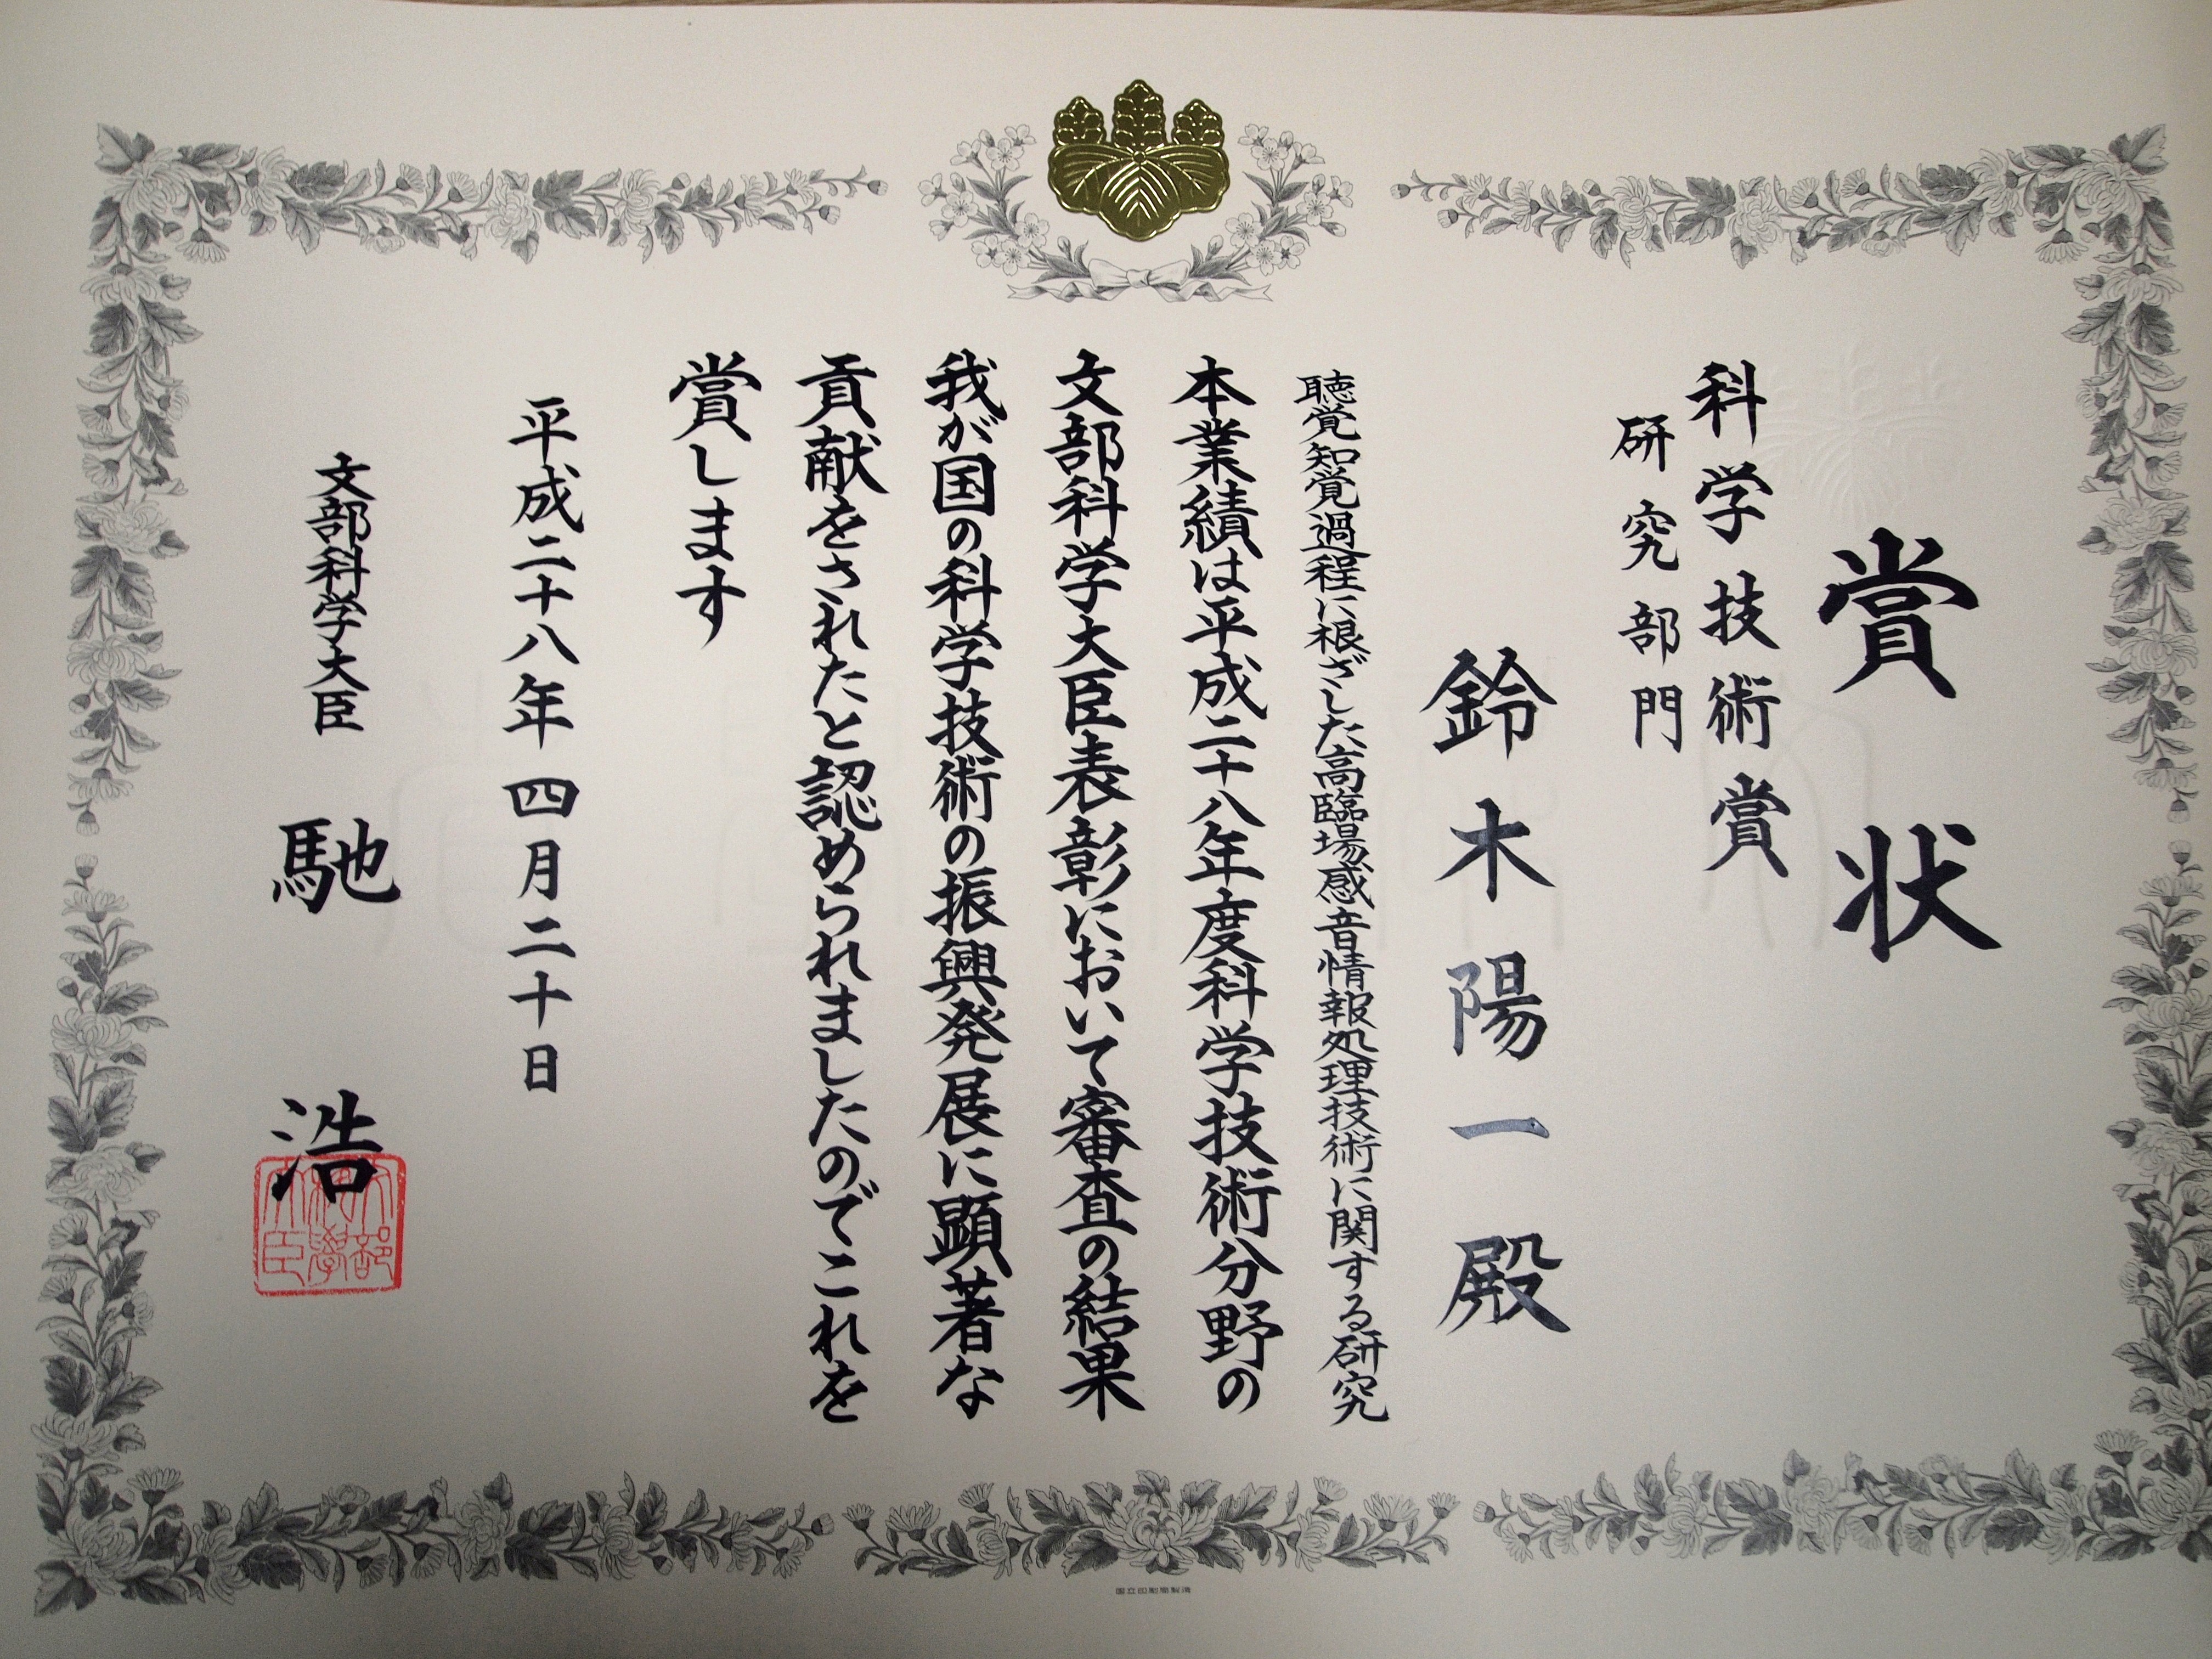 賞状
科学技術賞
研究部門
鈴木陽一殿
聴覚知覚過程に根ざした高臨場感音情報処理技術に関する研究
本業績は平成二十八年度科学技術分野の
文部科学大臣表彰において審査の結果
我が国の科学技術の振興発展に顕著な
貢献をされたと認められましたのでこれを
賞します
平成二十八年四月二十日
文部科学大臣 馳浩
文部科學大臣
国立印刷局製造